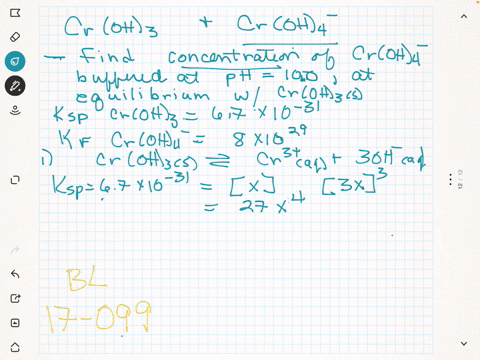 Cr(OH)3 + Cr(OH)4-
- Find concentration of Cr(OH)4-
buffered at pH = 10.0, at
equilibrium w/ Cr(OH)3(s)
Ksp Cr(OH)3 = 6.7 x 10^-31
KF Cr(OH)4- = 8 x 10^29
1) Cr(OH)3(s) ⇌ Cr3+(aq) + 3OH-(aq)
Ksp = 6.7 x 10^-31 = [x] [3x]^3
= 27 x^4
BL
17-099
12 / 12